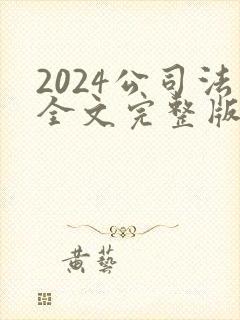 2024公司法
全文完整版
黄藝